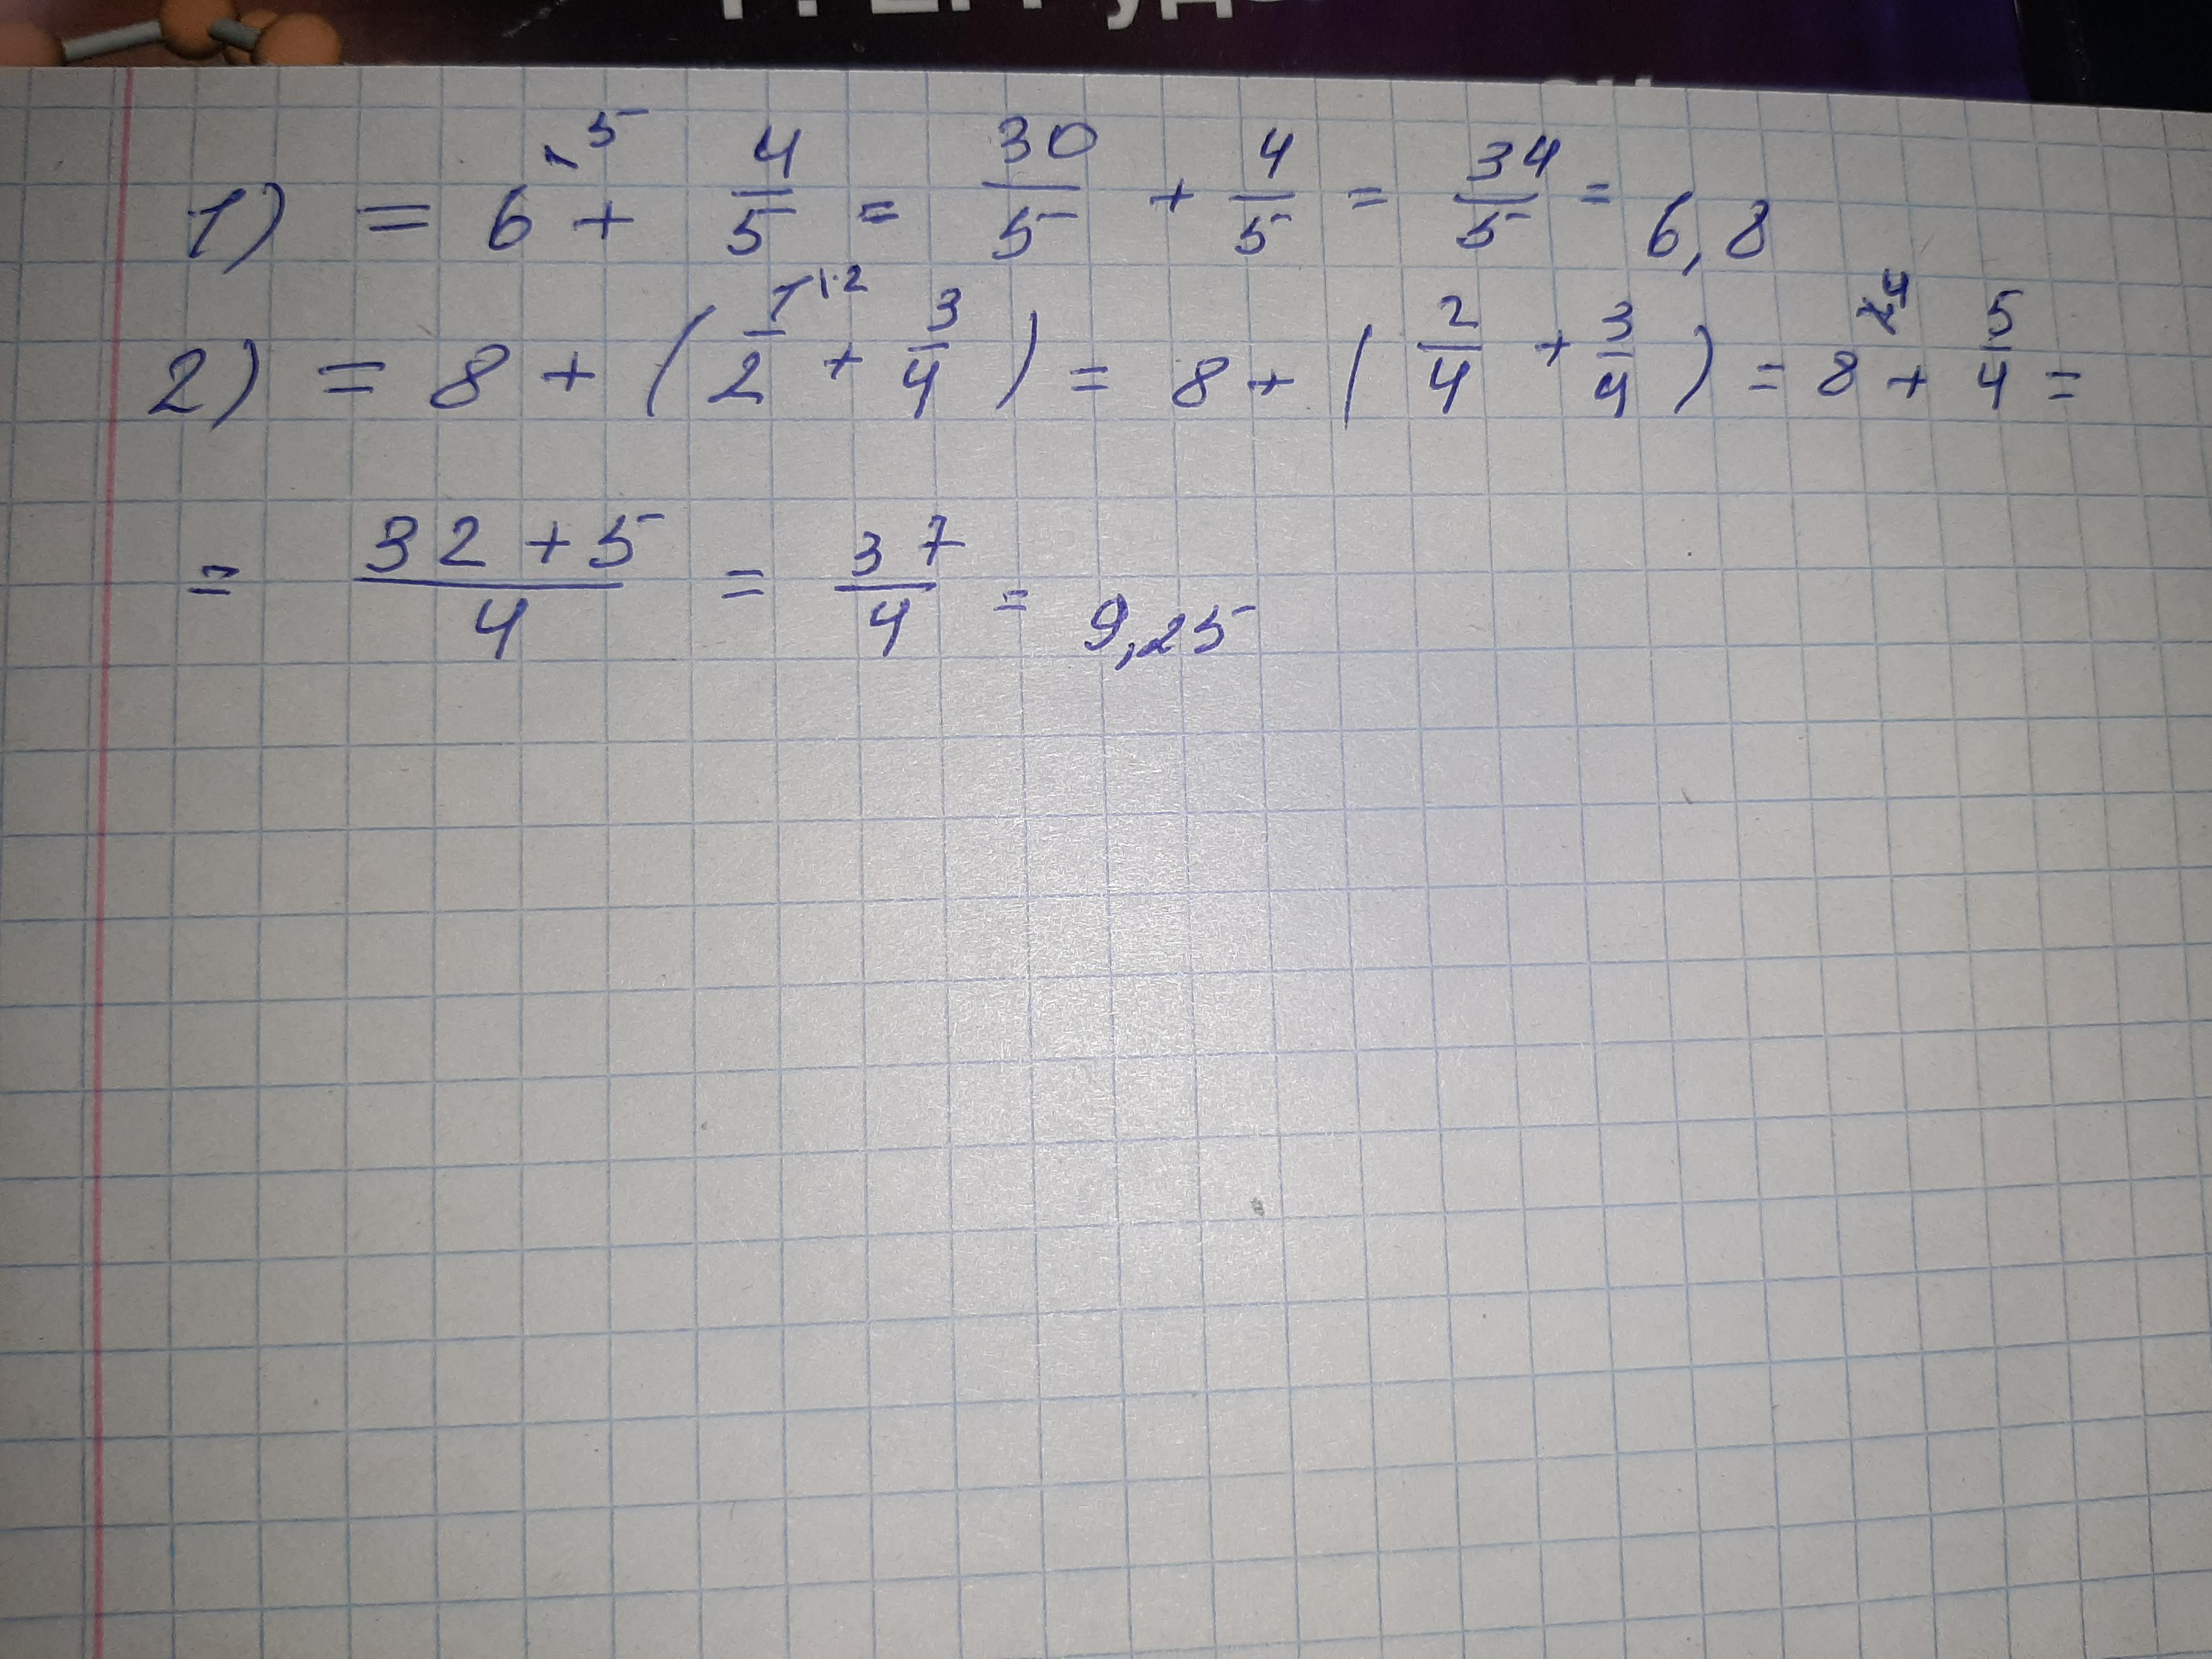 1) = 6 ·5 + 4/5 = 30/5 + 4/5 = 34/5 = 6,8
2) = 8 + (1/2 1·2 + 3/4) = 8 + (2/4 + 3/4) = 8 4 + 5/4 =
= 32+5/4 = 37/4 = 9,25